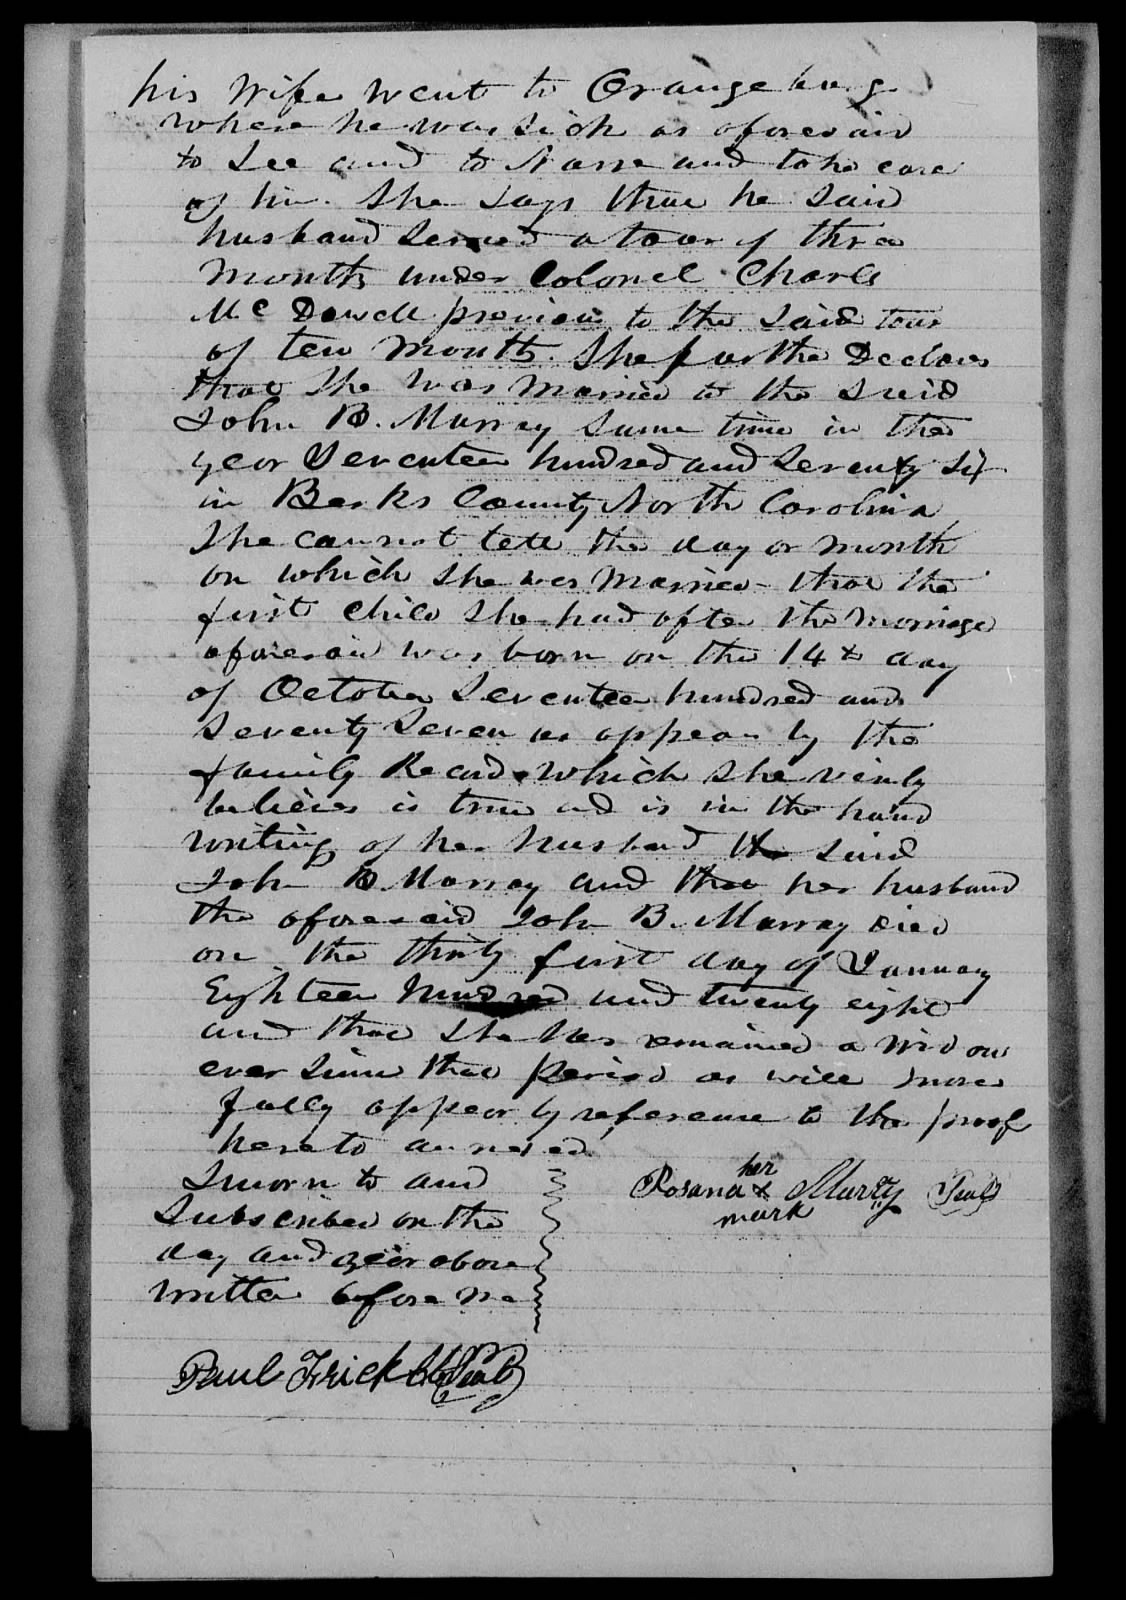 his Wife went to Orangeburg
where he was Sick as aforesaid
to See and to Nurse and take care
of him. She Says that he Said
husband Served a tour of three
Months under Colonel Charls
McDowell previous to the Said tour
of ten Months. She further Declares
that She was Married to the Said
John B. Murray Some time in the
year Seventeen hundred and Seventy Six
in Berks County North Carolina
She cannot tell the day or month
on which She was Married - that the
first Child She had after the Marriage
aforesaid was born on the 14th day
of October Seventeen hundred and
Seventy Seven as appears by the
family Record which She verily
believes is true and is in the hand
writing of her husband the Said
John B Murray and that her husband
the aforesaid John B. Murray Died
on the thirty first day of January
Eighteen hundred and twenty eight
and that She has remained a Widow
ever Since that period as will more
fully appear by reference to the proof
hereto annexed
Sworn to and
Subscribed on the
day and year above
written before me
Rosana her x mark Murry Seal
Paul Frick Seal